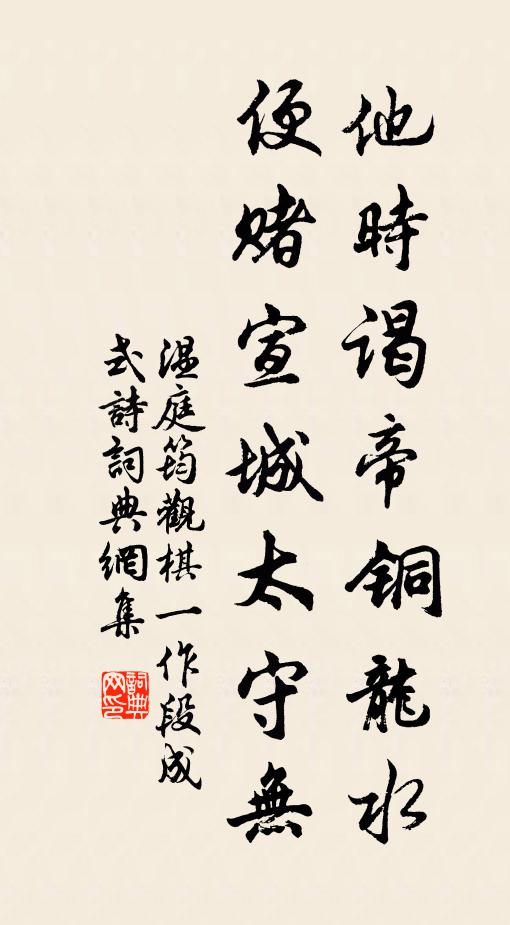 他時谒帝铜龍水
便賭宣城太守無
温庭筠觀棋一作段成
式詩詞典網集
詞典网印